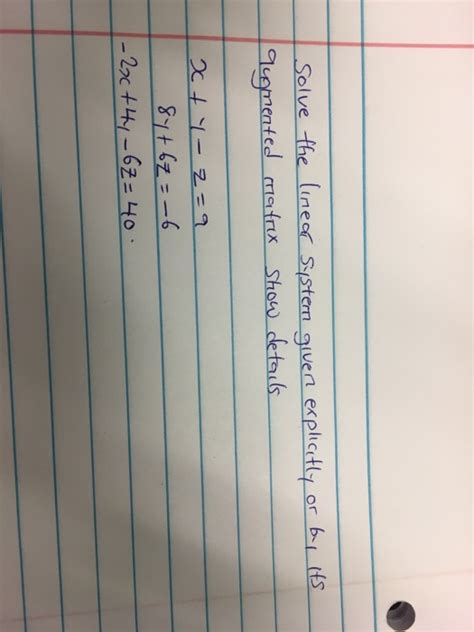 Solve the linear System given explicitly or by its
augmented matrix show details
x + y - z = 9
8y + 6z = -6
-2x + 4y - 6z = 40.